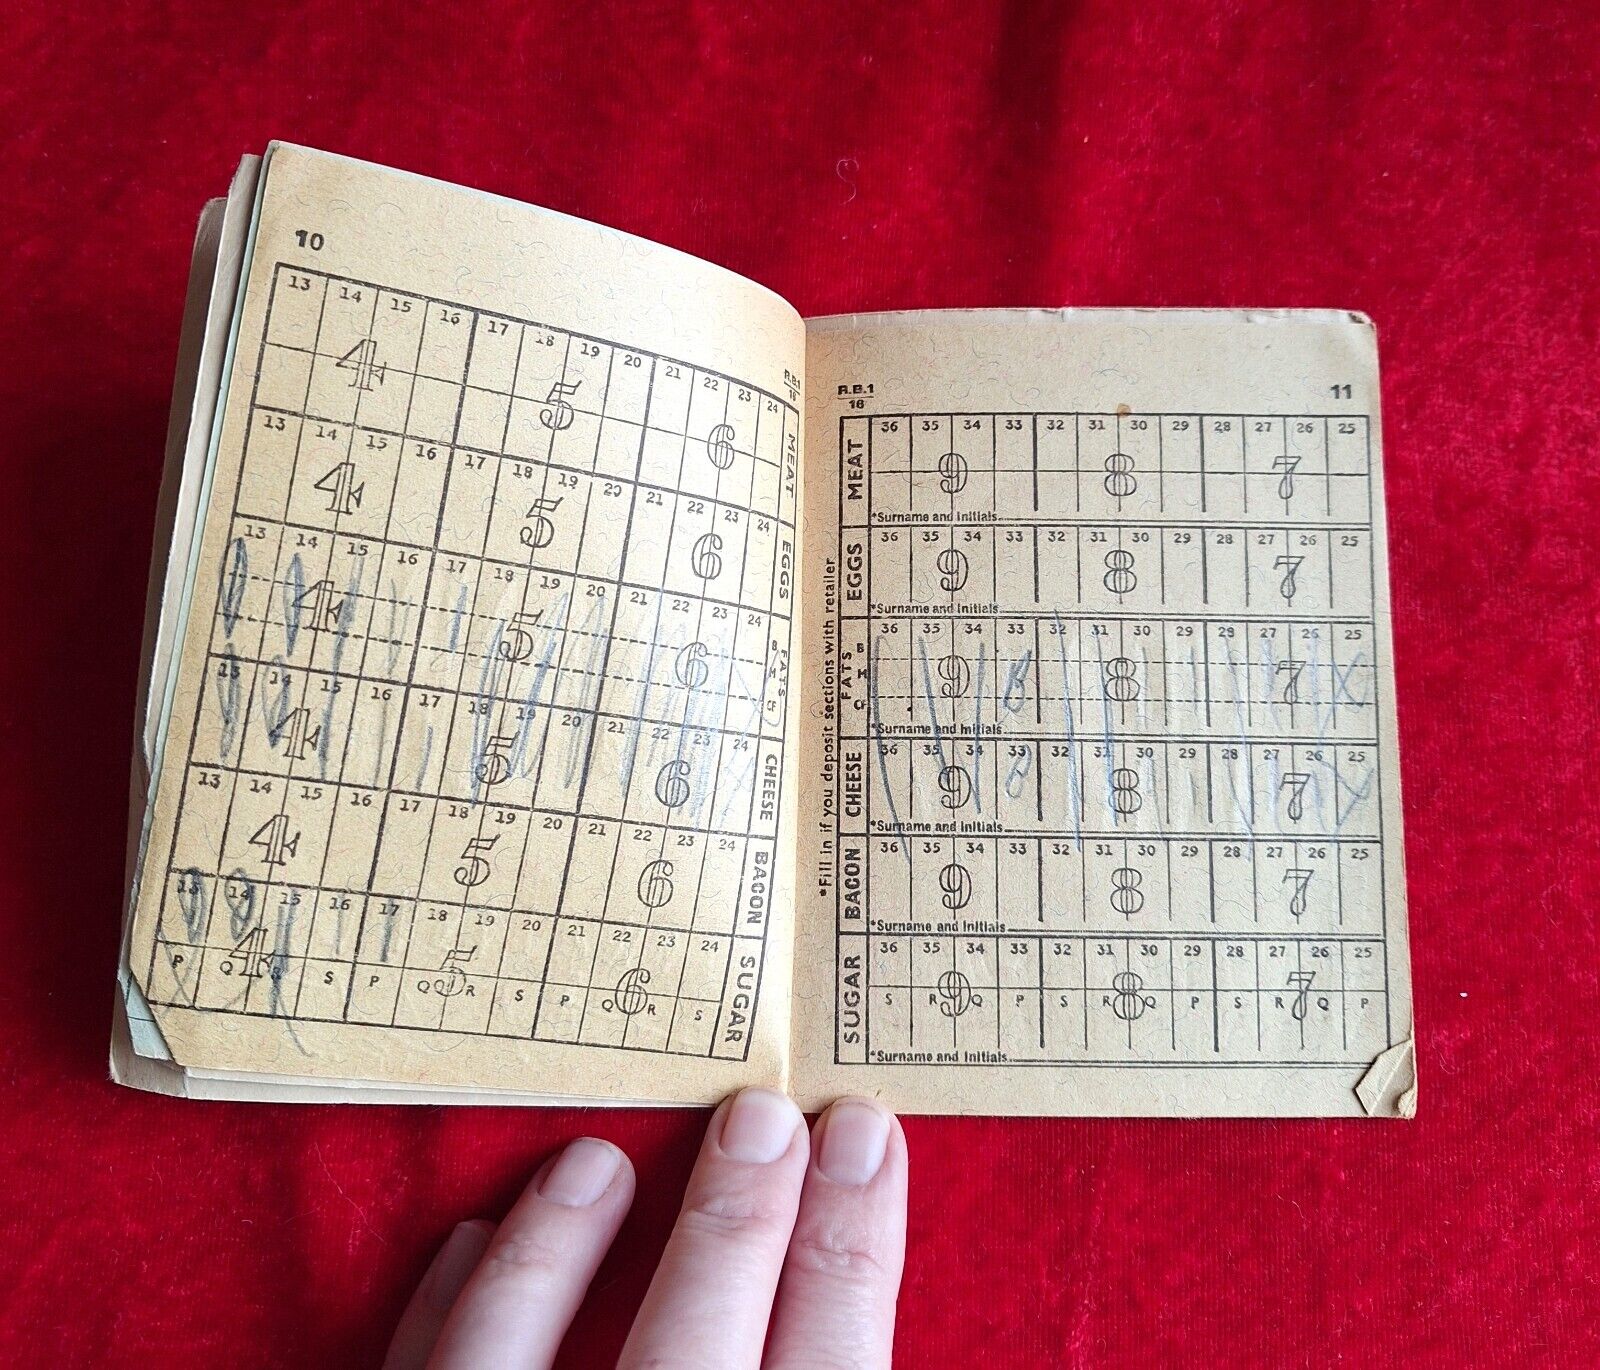 10
R.B.1
16
13 14 15 16 17 18 19 20 21 22 23 24
4 5 6
MEAT
13 14 15 16 17 18 19 20 21 22 23 24
4 5 6
EGGS
13 14 15 16 17 18 19 20 21 22 23 24
4 5 6
FATS
B
M
CF
13 14 15 16 17 18 19 20 21 22 23 24
4 5 6
CHEESE
13 14 15 16 17 18 19 20 21 22 23 24
4 5 6
BACON
13 14 15 16 17 18 19 20 21 22 23 24
4 5 6
P Q R S P Q R S P Q R S
SUGAR
R.B.1
16
11
*Fill in if you deposit sections with retailer
MEAT
36 35 34 33 32 31 30 29 28 27 26 25
9 8 7
*Surname and Initials
EGGS
36 35 34 33 32 31 30 29 28 27 26 25
9 8 7
*Surname and Initials
FATS
B
M
CF
36 35 34 33 32 31 30 29 28 27 26 25
9 8 7
*Surname and Initials
CHEESE
36 35 34 33 32 31 30 29 28 27 26 25
9 8 7
*Surname and Initials
BACON
36 35 34 33 32 31 30 29 28 27 26 25
9 8 7
*Surname and Initials
SUGAR
36 35 34 33 32 31 30 29 28 27 26 25
9 8 7
S R Q P S R Q P S R Q P
*Surname and Initials